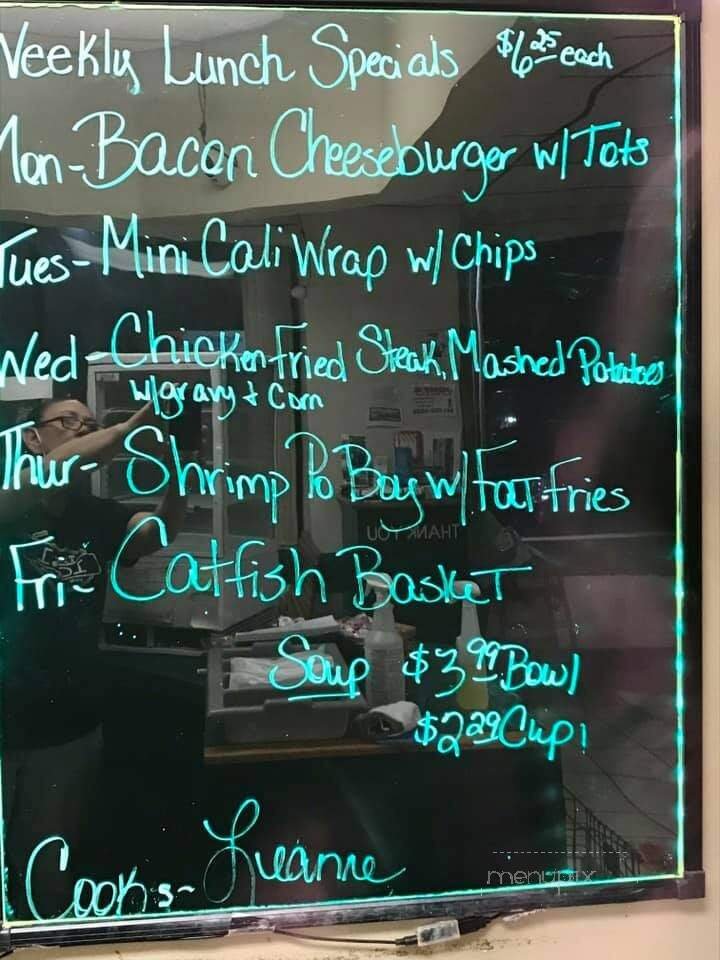 Weekly Lunch Specials $6.25 each
Mon-Bacon Cheeseburger w/ Tots
Tues-Mini Cali Wrap w/ Chips
Wed-Chicken Fried Steak, Mashed Potatoes
w/gravy & Corn
Thur-Shrimp Po Boy w/ Fat Fries
Fri-Catfish Basket
THANK YOU
Soup $3.99 Bowl
$2.29 Cup
Cooks-Leanne
menupix